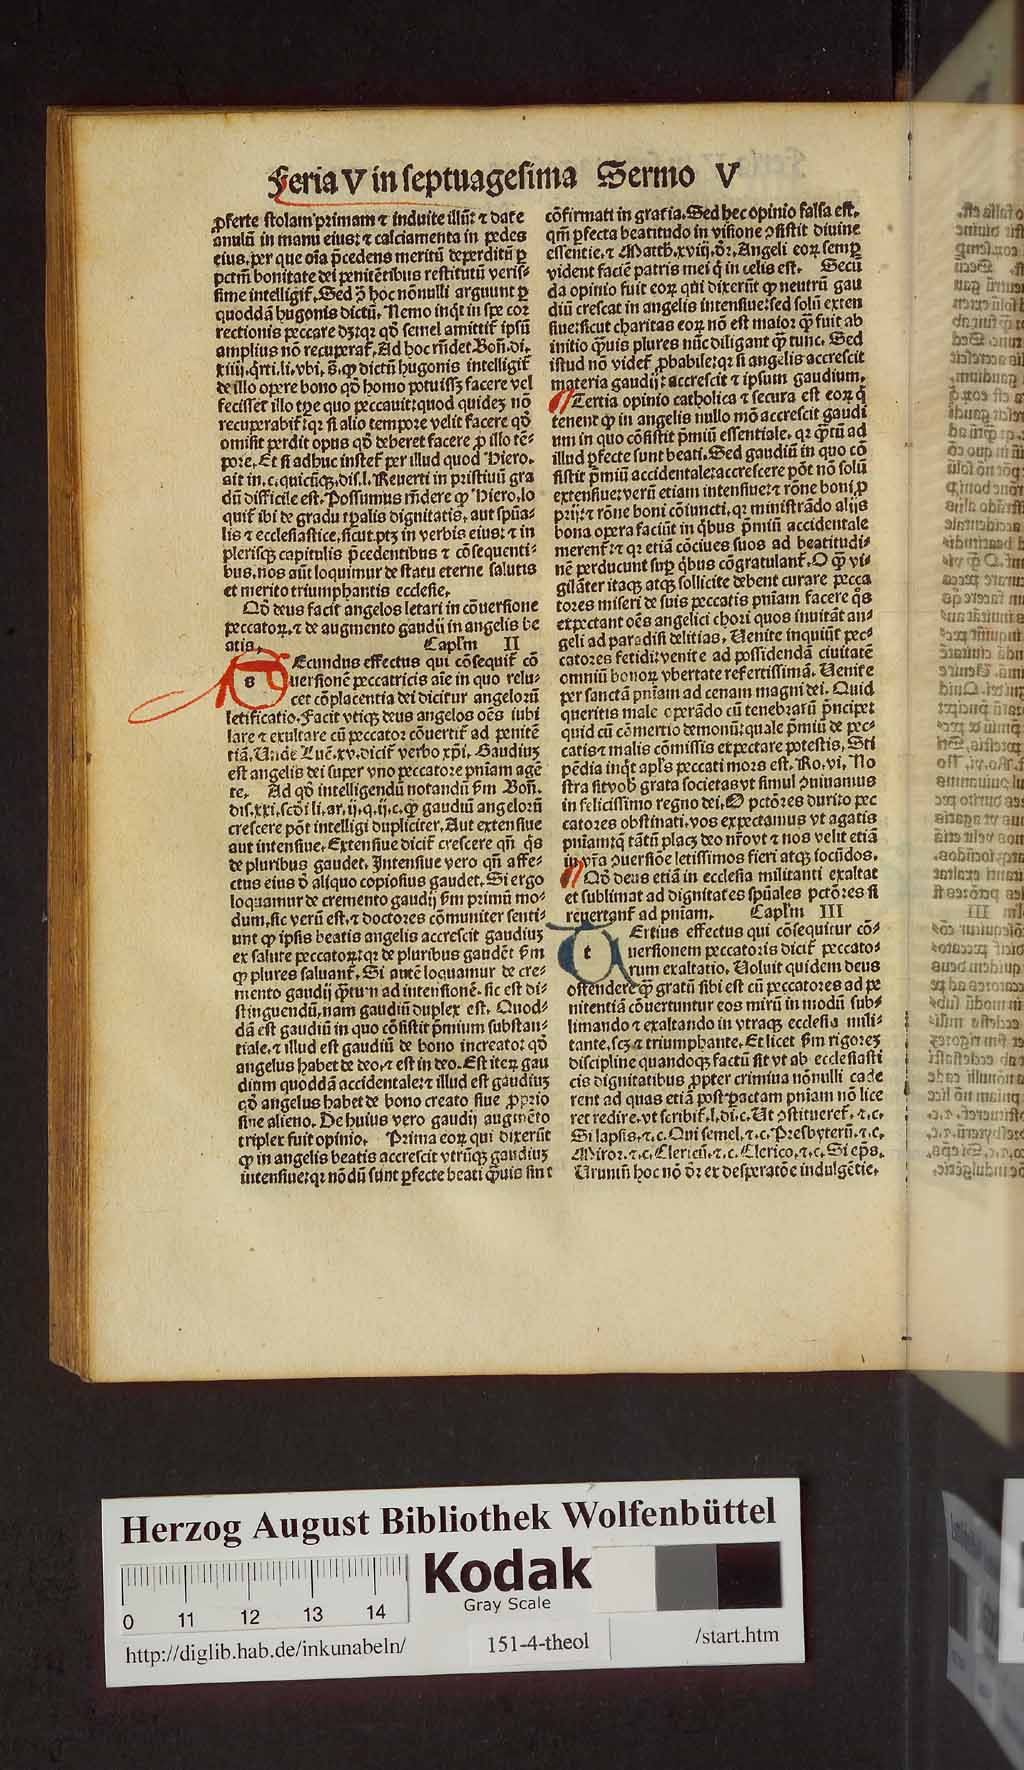 Feria V in septuagesima Sermo V
ꝓferte stolam primam ⁊ induite illũ: ⁊ date
anulũ in manu eius: ⁊ calciamenta in pedes
eius. per que oĩa p̃cedens meritũ deperditũ ꝑ
pctm̃ bonitate dei penitẽtibus restitutũ veris-
sime intelligit̃. Sed ꝯ̃ hoc nõnulli arguunt ꝑ
quoddã hugonis dictũ. Nemo inq̃t in spe cor
rectionis peccare dꝫ: qꝛ qd̃ semel amittit̃ ipsũ
amplius nõ recuperat̃. Ad hoc rñdet Boñ. di.
xiiij. q̃rti. li. vbi. s̃. ꝙ dictũ hugonis intelligit̃
de illo opere bono qd̃ homo potuissꝫ facere vel
fecisset illo tꝑe quo peccauit: quod quideꝫ nõ
recuperabit̃: qꝛ si alio tempore velit facere qd̃
omisit perdit opus qd̃ deberet facere ꝓ illo tẽ-
pore. Et si adhuc instet̃ per illud quod Hiero.
ait in. c. quicũqꝫ. dis. l. Reuerti in pristiuũ gra
dũ difficile est. Possumus rñdere ꝙ Hiero. lo
quit̃ ibi de gradu tꝑalis dignitatis. aut spũa-
lis ⁊ ecclesiastice. sicut. ptꝫ in verbis eius: ⁊ in
plerisqꝫ capitulis p̃cedentibus ⁊ cõsequenti-
bus. nos aũt loquimur de statu eterne salutis
et merito triumphantis ecclesie.
Qd̃ deus facit angelos letari in cõuersione
peccatoꝝ. ⁊ de augmento gaudij in angelis be
atis. Capl'm II
s Ecundus effectus qui cõsequit̃ cõ
uersionẽ peccatricis aĩe in quo relu-
cet cõplacentia dei dicitur angelorũ
letificatio. Facit vtiqꝫ deus angelos oẽs iubi
lare ⁊ exultare cũ peccator cõuertit̃ ad penitẽ
tiã. Unde Luẽ. xv. dicit̃ verbo xp̃i. Gaudiuꝫ
est angelis dei super vno peccatore pniam agẽ
te. Ad qd̃ intelligendũ notandũ ẜm Boñ.
dis. xxi. scd̃i li. ar. ij. q. ij. c. ꝙ gaudiũ angelorũ
crescere põt intelligi dupliciter. Aut extensiue
aut intensiue. Extensiue dicit̃ crescere qñ q̃s
de pluribus gaudet. Intensiue vero qñ affe-
ctus eius d̃ aliquo copiosius gaudet. Si ergo
loquamur de cremento gaudij ẜm primũ mo-
dum. sic verũ est. ⁊ doctores cõmuniter senti-
unt ꝙ ipsis beatis angelis accrescit gaudiuꝫ
ex salute peccatoꝝ: qꝛ de pluribus gaudẽt ẜm
ꝙ plures saluant̃. Si autẽ loquamur de cre-
mento gaudij q̃tum ad intensionẽ. sic est di-
stinguendũ. nam gaudiũ duplex est. Quod-
dã est gaudiũ in quo cõsistit p̃mium substan-
tiale. ⁊ illud est gaudiũ de bono increato: qd̃
angelus habet de deo. ⁊ est in deo. Est iteꝝ gau
dium quoddã accidentale: ⁊ illud est gaudiuꝫ
qd̃ angelus habet de bono creato siue ꝓprio
siue alieno. De huius vero gaudij augmẽto
triplex fuit opinio. Prima eoꝝ qui dixerũt
ꝙ in angelis beatis accrescit vtrũqꝫ gaudiuꝫ
intensiue: qꝛ nõdũ sunt ꝑfecte beati q̃uis sint
cõfirmati in gratia. Sed hec opinio falsa est.
qm̃ ꝑfecta beatitudo in visione ꝯsistit diuine
essentie. ⁊ Matth. xviij. dr̃. Angeli eoꝝ semꝑ
vident faciẽ patris mei q̃ in celis est. Secũ
da opinio fuit eoꝝ qui dixerũt ꝙ neutrũ gau
diũ crescat in angelis intensiue: sed solũ exten
siue: sicut charitas eoꝝ nõ est maior q̃ fuit ab
initio q̃uis plures nũc diligant q̃ tunc. Sed
istud nõ videt̃ ꝓbabile: qꝛ si angelis accrescit
materia gaudij: accrescit ⁊ ipsum gaudium.
Tertia opinio catholica ⁊ secura est eoꝝ q̃
tenent ꝙ in angelis nullo mõ accrescit gaudi
um in quo cõsistit p̃miũ essentiale. qꝛ q̃tũ ad
illud ꝑfecte sunt beati. Sed gaudiũ in quo cõ
sistit p̃miũ accidentale: accrescere põt nõ solũ
extensiue: verũ etiam intensiue: ⁊ rõne boni ꝓ
prij: ⁊ rõne boni cõiuncti. qꝛ ministrãdo alijs
bona opera faciũt in q̃bus p̃miũ accidentale
merent̃: ⁊ qꝛ etiã cõciues suos ad beatitudi-
nẽ perducunt suꝑ q̃bus cõgratulant̃. O q̃ vi-
gilãter itaqꝫ atqꝫ sollicite debent curare pecca
tores miseri de suis peccatis pniam facere q̃s
expectant oẽs angelici chori quos inuitãt an-
geli ad paradisi delitias. Uenite inquiũt pec-
catores fetidi: venite ad possidendã ciuitatẽ
omniũ bonoꝝ vbertate refertissimã. Uenite
per sanctã pniam ad cenam magni dei. Quid
queritis male operãdo cũ tenebrarũ p̃ncipe:
quid cũ cõmertio demonũ: quale p̃miũ de pec-
catis ⁊ malis cõmissis expectare potestis. Sti
pẽdia inq̃t apl's peccati mors est. Ro. vi. No
stra sit vob̃ grata societas vt simul ꝯuiuamus
in felicissimo regno dei. O pctõres durito pec
catores obstinati. vos expectamus vt agatis
pniam: q̃ tãtũ placꝫ deo nr̃o vt ⁊ nos velit etiã
in vr̃a ꝯuersiõe letissimos fieri atqꝫ iocũdos.
Qd̃ deus etiã in ecclesia militanti exaltat
et sublimat ad dignitates spũales pctõres si
reuertant̃ ad pniam. Capl'm III
t Ertius effectus qui cõsequitur cõ-
uersionem peccatoris dicit̃ peccato-
rum exaltatio. Uoluit quidem deus
ostendere q̃ gratũ sibi est cũ peccatores ad pe
nitentiã cõuertuntur eos mirũ in modũ sub-
limando ⁊ exaltando in vtraqꝫ ecclesia mili-
tante. scꝫ ⁊ triumphante. Et licet ẜm rigoreꝫ
discipline quandoqꝫ factũ sit vt ab ecclesiasti
cis dignitatibus ꝓpter crimina nõnulli cade
rent ad quas etiã post ꝑactam pniam nõ lice
ret redire. vt scribit̃. l. di. c. Ut ꝯstitueret̃. ⁊. c.
Si lapsis. ⁊. c. Qui semel. ⁊. c. Presbyterũ. ⁊. c.
Miror. ⁊. c. Clericũ. ⁊. c. Clerico. ⁊. c. Si ep̃s.
Uerum̃ hoc nõ dr̃ ex desperatõe indulgẽtie.
Herzog August Bibliothek Wolfenbüttel
Kodak
Gray Scale
0 11 12 13 14
http://diglib.hab.de/inkunabeln/ 151-4-theol /start.htm